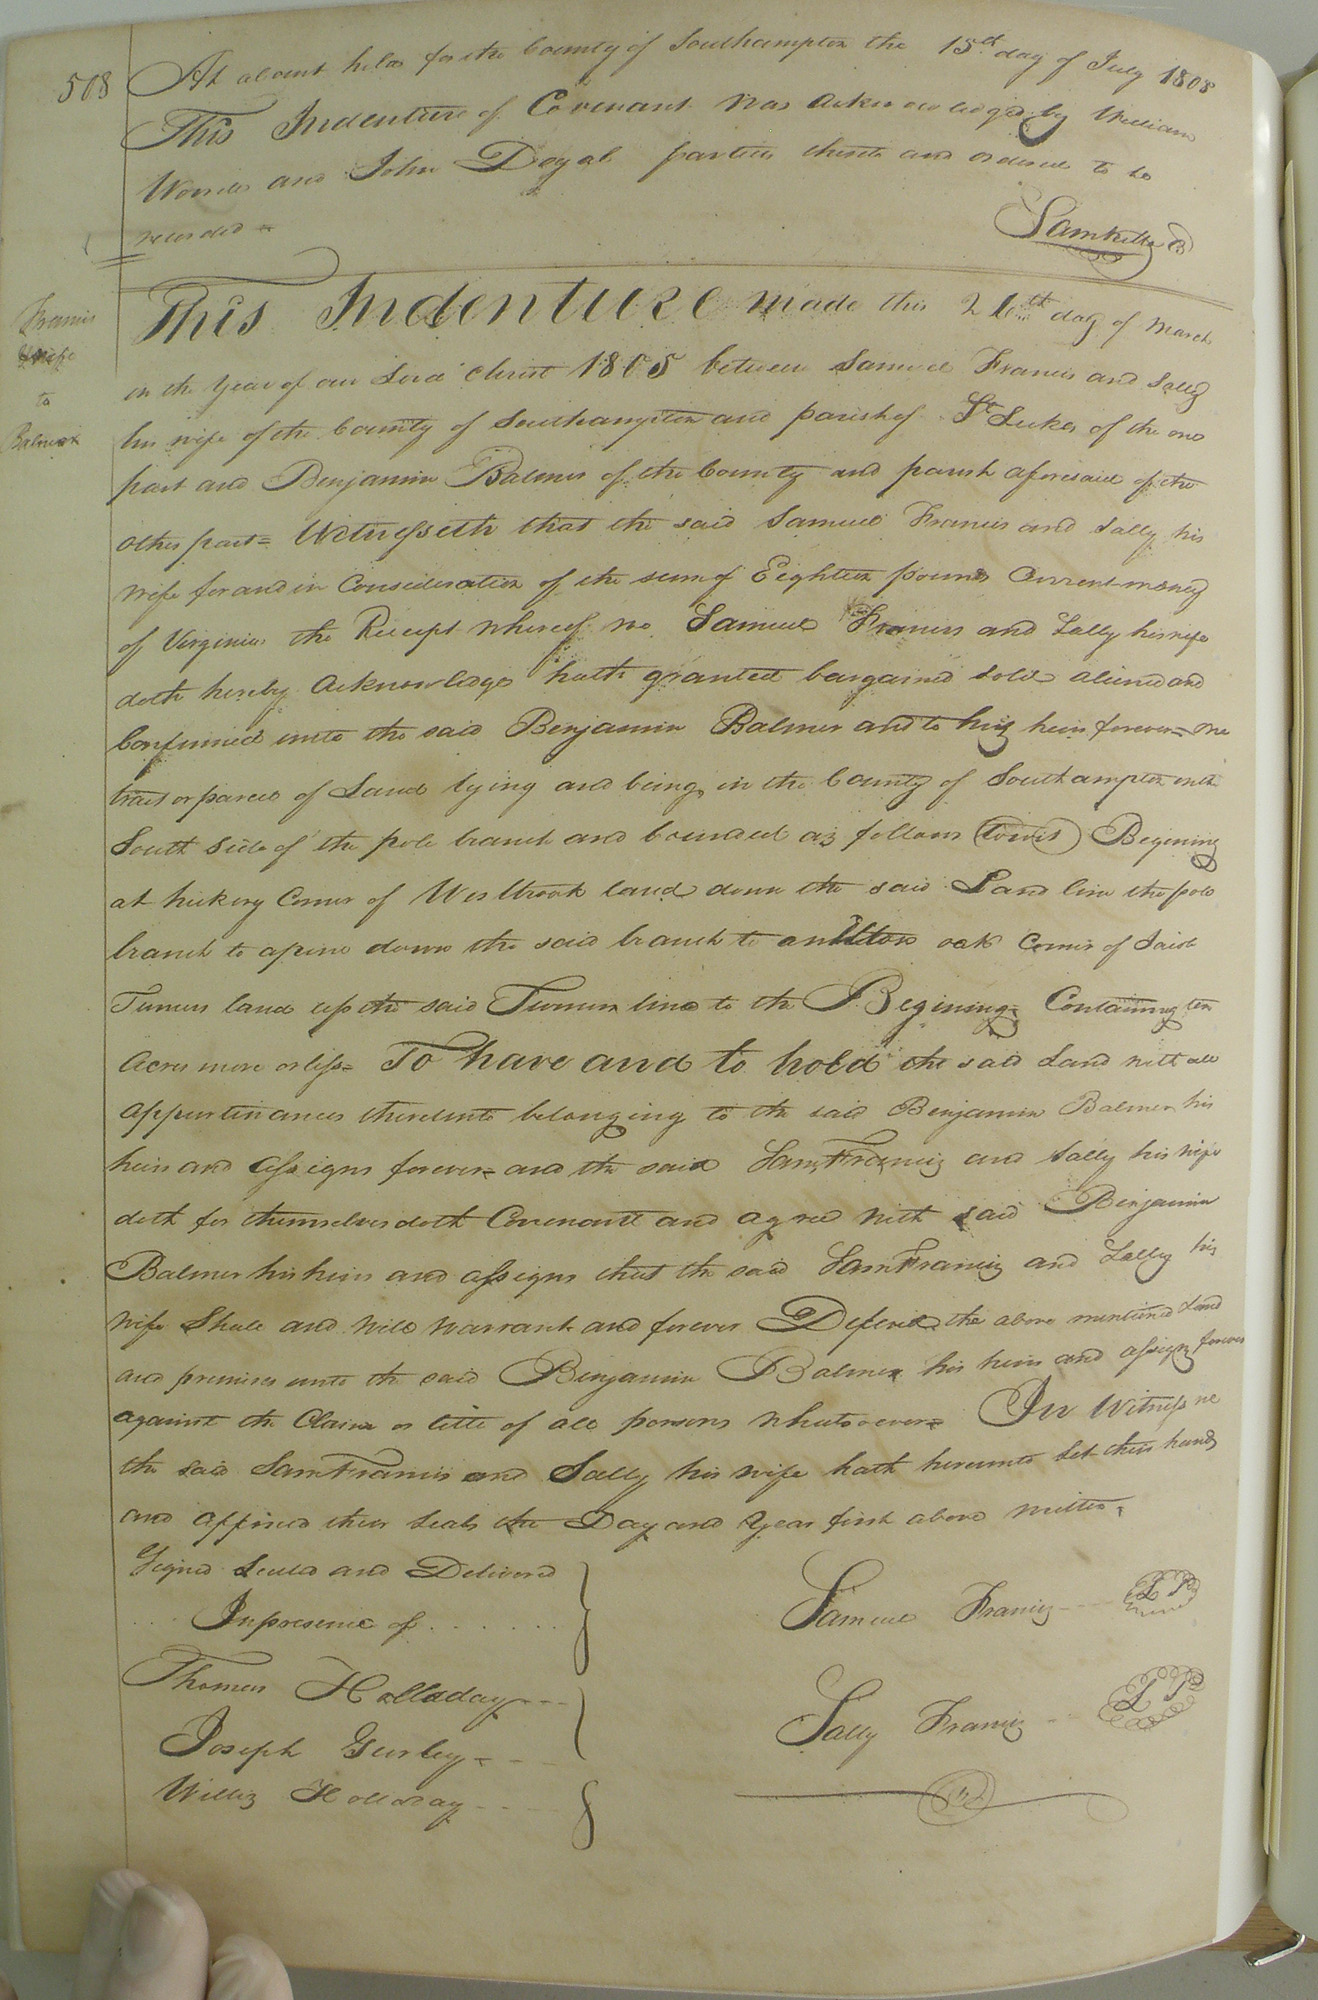 508
At a Court held for the County of Southampton the 15th day of July 1808
This Indenture of Covenant was acknowledged by William
and John Doyal parties thereto and ordered to be
recorded =
Sam Kello
Francis
& wife
to
Balmer
This Indenture made this 26th day of March
in the year of our Lord Christ 1805 between Samuel Francis and Sally
his wife of the County of Southampton and parish of St Lukes of the one
part and Benjamin Balmer of the County and parish aforesaid of the
other part = Witnesseth that the said Samuel Francis and Sally his
wife for and in Consideration of the sum of Eighteen pounds Current money
of Virginia the Receipt whereof we Samuel Francis and Sally his wife
doth hereby acknowledge hath granted bargained sold aliened and
Confirmed unto the said Benjamin Balmer and to his heirs forever = one
tract or parcel of Land lying and being in the County of Southampton on the
South side of the pole branch and bounded as follows (towit) Begining
at hickory Corner of Westbrook land down the said Land line the pole
branch to a pine down the said branch to an oak Corner of
Turners land up the said Turners line to the Begining = Containing ten
Acres more or less = To have and to hold the said Land with all
appurtinances thereunto belonging to the said Benjamin Balmer his
heirs and assigns forever = and the said Sam Francis and Sally his wife
doth for themselves doth Covenant and agree with said Benjamin
Balmer his heirs and assigns that the said Sam Francis and Sally his
wife Shall and will warrant and forever Defend the above mentioned Land
and premises unto the said Benjamin Balmer his heirs and assigns forever
against the Claim or title of all persons whatsoever = In Witness we
the said Sam Francis and Sally his wife hath hereunto Set their hands
and affixed their Seals the Day and Year first above written
Signed Seald and Delivered
In presence of
Thomas Holladay
Joseph Gurley
Willis Holladay
Samuel Francis L S
Sally Francis L S